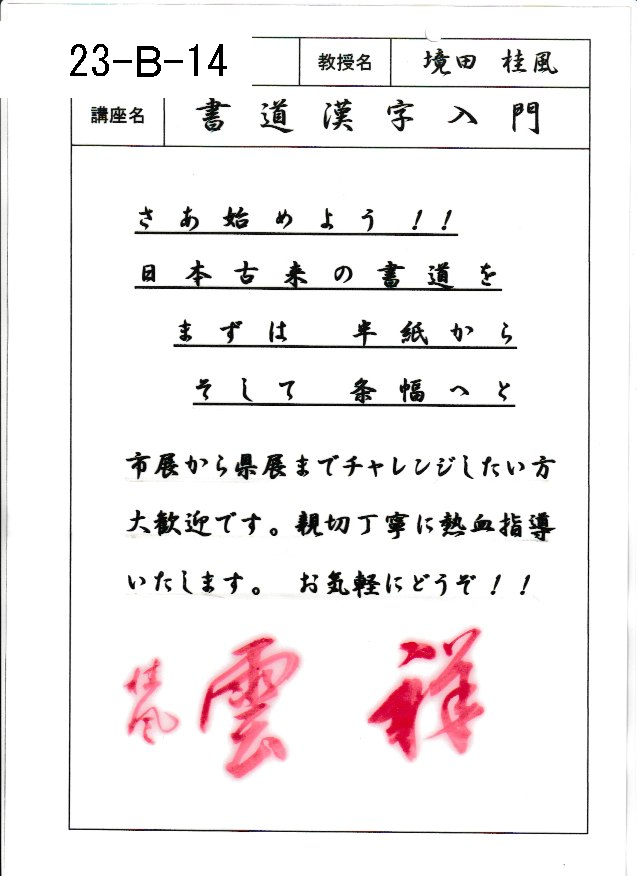 23-B-14
教授名 境田 桂風
講座名 書道漢字入門
さあ始めよう!!
日本古来の書道を
まずは 半紙から
そして 条幅へと
市展から県展までチャレンジしたい方
大歓迎です。親切丁寧に熱血指導
いたします。 お気軽にどうぞ!!
祥雲
桂風